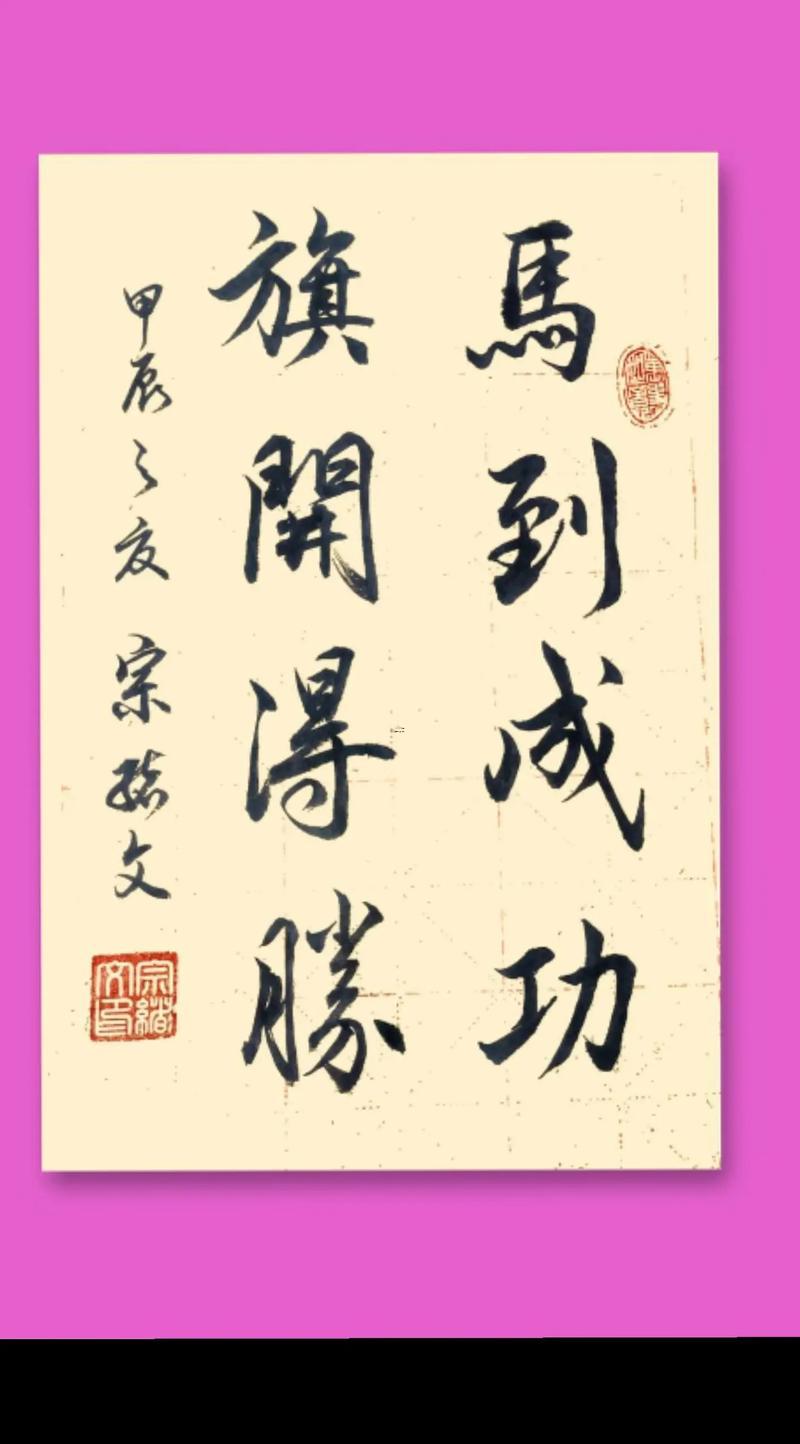 馬到成功
旗開得勝
甲辰之夏 宗緒文
宗緒文印